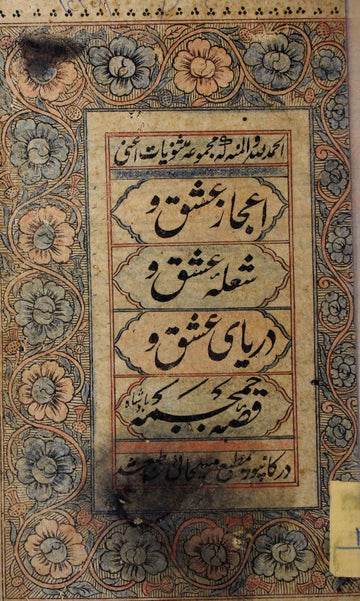 الحمد لله والمنه که مجموعه مثنویات اعنی
اعجاز عشق و
شعلهٔ عشق و
دریای عشق و
قصه جمجمه بادشاه
در کانپور مطبع مسیحائی طبع شد